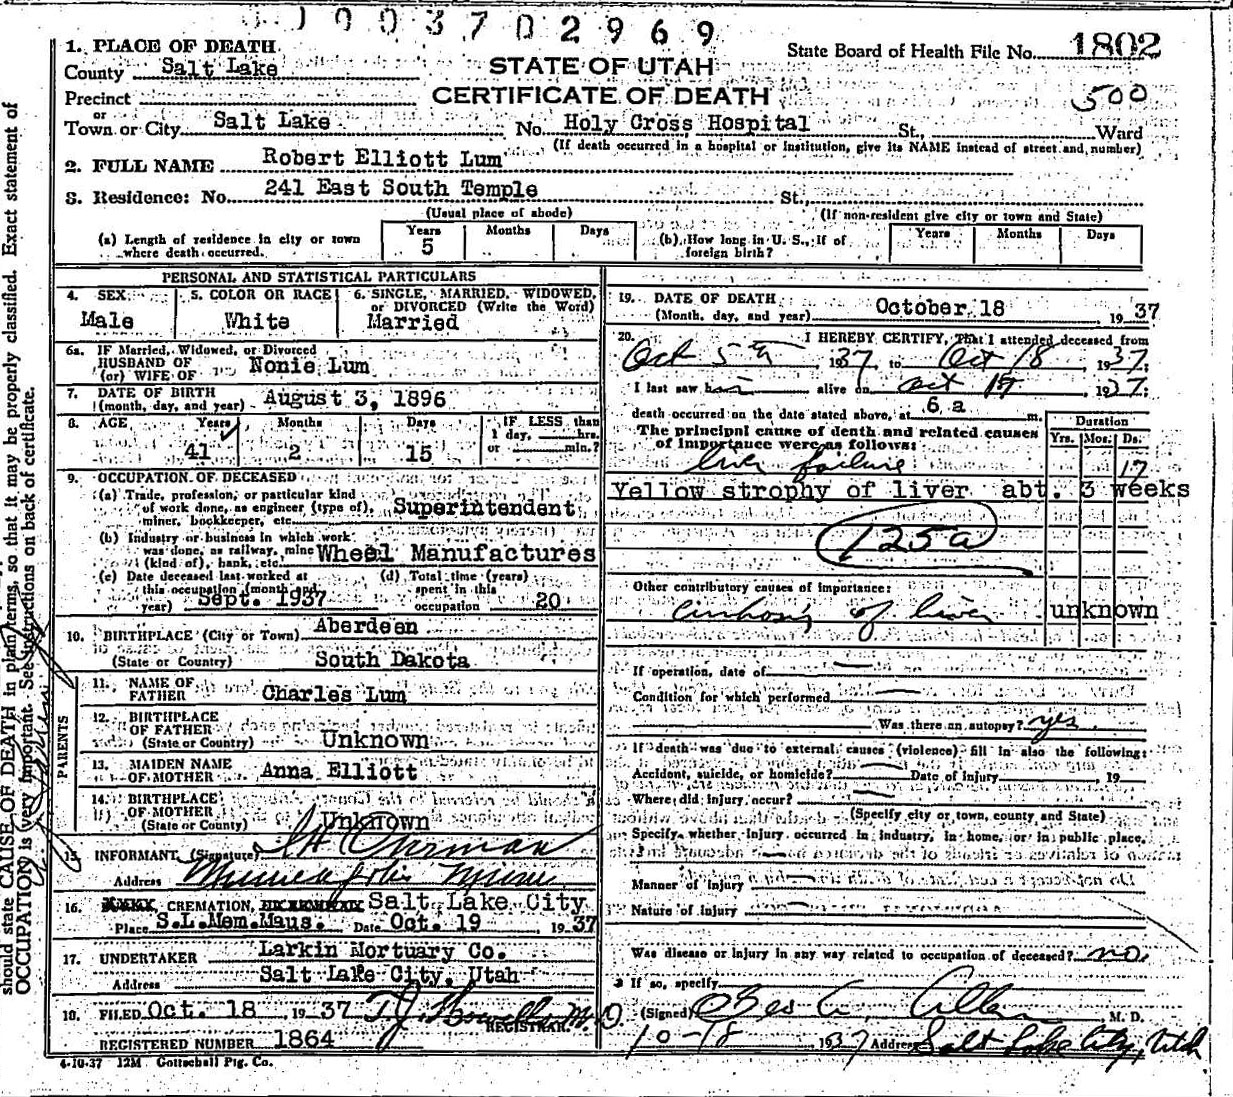 0 0 3 7 0 2 9 6 9
1. PLACE OF DEATH
State Board of Health File No. 1802
County Salt Lake
STATE OF UTAH
CERTIFICATE OF DEATH
500
Precinct
or
Town or City Salt Lake No. Holy Cross Hospital St., Ward
(If death occurred in a hospital or institution, give its NAME instead of street and number)
2. FULL NAME Robert Elliott Lum
3. Residence: No. 241 East South Temple St.,
(Usual place of abode) (If non-resident give city or town and State)
(a) Length of residence in city or town where death occurred. Years 5 Months Days
(b) How long in U. S., if of foreign birth? Years Months Days
PERSONAL AND STATISTICAL PARTICULARS
4. SEX Male
5. COLOR OR RACE White
6. SINGLE, MARRIED, WIDOWED, or DIVORCED (Write the Word) Married
6a. IF Married, Widowed, or Divorced
HUSBAND OF
(or) WIFE OF Nonie Lum
7. DATE OF BIRTH
(month, day, and year) August 3, 1896
8. AGE Years 41 Months 2 Days 15 IF LESS than 1 day, hrs. or min.?
9. OCCUPATION OF DECEASED
(a) Trade, profession, or particular kind of work done, as engineer (type of), miner, bookkeeper, etc. Superintendent
(b) Industry or business in which work was done, as railway, mine (kind of), bank, etc. Wheel Manufactures
(c) Date deceased last worked at this occupation (month and year) Sept. 1937
(d) Total time (years) spent in this occupation 20
10. BIRTHPLACE (City or Town) Aberdeen
(State or Country) South Dakota
PARENTS
11. NAME OF FATHER Charles Lum
12. BIRTHPLACE OF FATHER
(State or Country) Unknown
13. MAIDEN NAME OF MOTHER Anna Elliott
14. BIRTHPLACE OF MOTHER
(State or Country) Unknown
15. INFORMANT (Signature)
Address Minneapolis Minn
16. CREMATION, Salt Lake City
Place S.L.Mem.Maus. Date Oct. 19 1937
17. UNDERTAKER Larkin Mortuary Co.
Address Salt Lake City, Utah
18. FILED Oct. 18 1937 T. J. Howells M.D.
REGISTRAR
REGISTERED NUMBER 1864
4-10-37 12M Gottschall Ptg. Co.
19. DATE OF DEATH
(Month, day, and year) October 18 1937
20. I HEREBY CERTIFY, That I attended deceased from
Oct 5th 1937 to Oct 18 1937;
I last saw him alive on Oct 17 1937;
death occurred on the date stated above, at 6 a m.
The principal cause of death and related causes of importance were as follows:
Duration Yrs. Mos. Ds.
liver failure 17
Yellow strophy of liver abt. 3 weeks
125a
Other contributory causes of importance:
cirrhosis of liver unknown
If operation, date of
Condition for which performed
Was there an autopsy? yes
If death was due to external causes (violence) fill in also the following:
Accident, suicide, or homicide? Date of injury 19
Where did injury occur?
(Specify city or town, county and State)
Specify whether injury occurred in industry, in home, or in public place.
Manner of injury
Nature of injury
Was disease or injury in any way related to occupation of deceased? no
If so, specify
(Signed) Geo. A. Allen M. D.
10-18 1937 Address Salt Lake City, Utah
should state CAUSE OF DEATH in plain terms, so that it may be properly classified. Exact statement of
OCCUPATION is very important. See instructions on back of certificate.